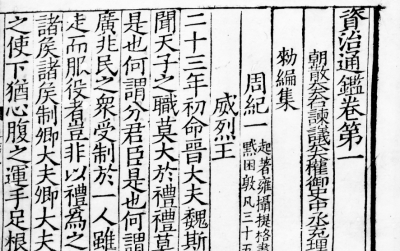 資治通鑑卷第一
朝散大夫右諫議大夫權御史中丞充理
勑編集
周紀一
起著雍攝提格盡
黙困敦凡三十五
威烈王
二十三年初命晉大夫魏斯
聞天子之職莫大於禮禮莫
是也何謂分君臣是也何謂
廣兆民之衆受制於一人雖
走而服役者豈非以禮為之
諸矦諸矦制卿大夫卿大夫
之使下猶心腹之運手足根